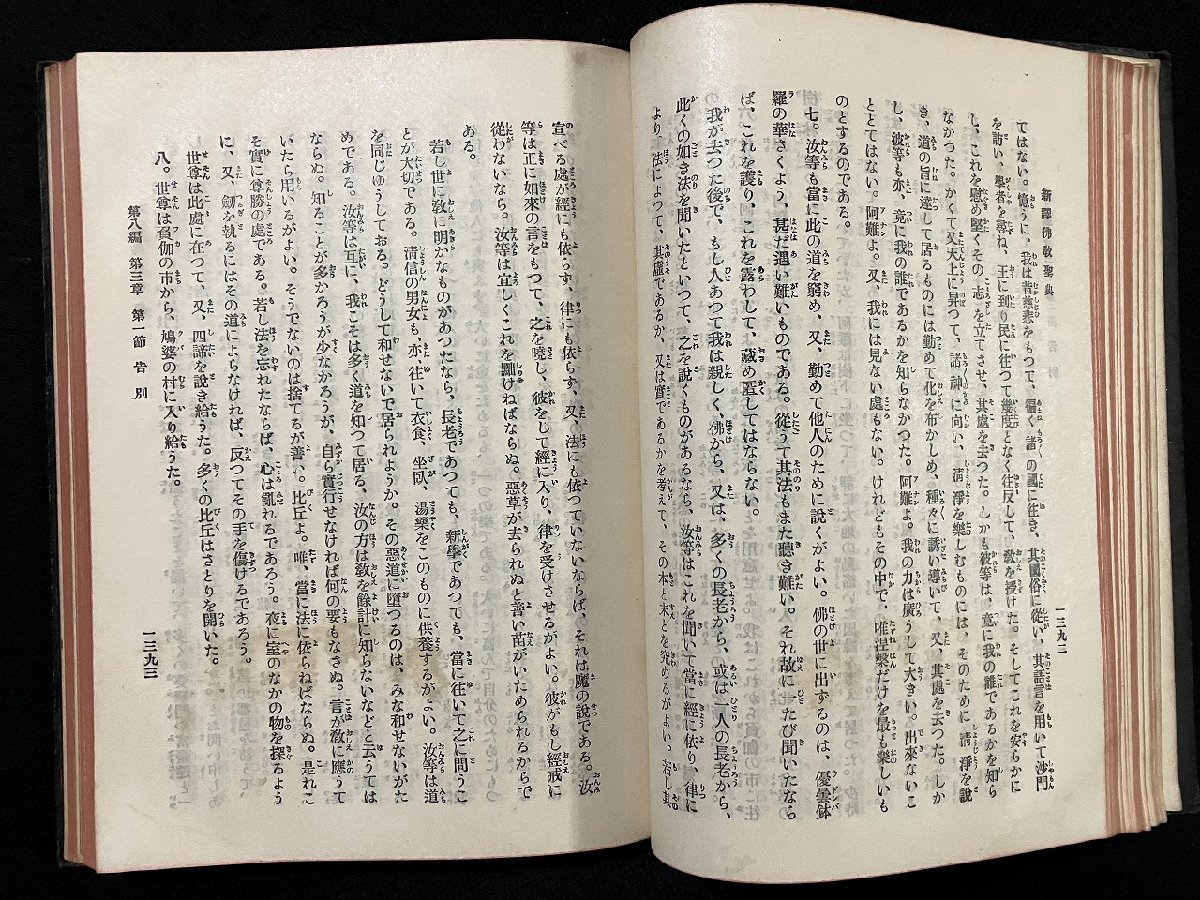 新譯佛敎聖典
一三九二
ではない。憶うに、我は昔慈悲をもつて、徧く諸の國に往き、其國俗に從い、其語言を用いて沙門
を訪い、學者を尋ね、王に到り民に往つて幾度となく往反して、敎を授けた。そしてこれを安らかに
し、これを慰め堅くその志を立てさせ、其處を去つた。しかも彼等は、竟に我の誰であるかを知ら
なかつた。かくて又天上に昇つて、諸神に向い、淸淨を樂しむものには、そのために淸淨を說
き、道の旨に達して居るものには勤めて化を布かしめ、種々に誘い導いて、又、其處を去つた。しか
し、彼等も亦、竟に我の誰であるかを知らなかつた。阿難よ。我の力は廣うして大きい。出來ないこ
ととてはない。阿難よ。又、我には見ない處もない。けれどもその中で、唯涅槃だけを最も樂しいも
のとするのである。
七。汝等も當に此の道を窮め、又、勤めて他人のために說くがよい。佛の世に出ずるのは、優雲鉢
羅の華さくよう、甚だ遇い難いものである。從うて其法もまた聽き難い。それ故に一たび聞いたなら
ば、これを護り、これを露わして、藏め匿してはならない。
我が去つた後で、もし人あつて我は親しく、佛から、又は、多くの長老から、或は一人の長老から、
此くの如き法を聞いたといつて、之を說くものがあるなら、汝等はこれを聞いて當に經に依り、律に
より、法によつて、其虛であるか、又は實であるかを考えて、その本と末とを究めるがよい。若し其
宣べる處が經にも依らず、律にも依らず、又、法にも依つていないならば、それは魔の說である。汝
等は正に如來の言をもつて、之を曉し、彼をして經に入り、律を受けさせるがよい。彼がもし經戒に
從わないなら。汝等は宜しくこれを斷けねばならぬ。惡草が去られぬと善い苗がいためられるからで
ある。
若し世に敎に明かなものがあつたなら、長老であつても、新學であつても、當に往いて之に問うこ
とが大切である。淸信の男女も亦、往いて衣食、坐臥、湯藥をこのものに供養するがよい。汝等は道
を同じゆうしておる。どうして和せないで居られようか。その惡道に墮つるのは、みな和せないがた
めである。汝等は互に、我こそは多く道を知つて居る、汝の方は敎を餘計に知らないなどと云うては
ならぬ。知ることが多かろうが少なかろうが、自ら實行せなければ何の要もなさぬ。言が敎に應うて
いたら用いるがよい。そうでないのは捨てるが善い。比丘よ。唯、當に法に依らねばならぬ。是れこ
そ實に尊勝の處である。若し法を忘れたならば、心は亂れるであろう。夜に室のなかの物を探るよう
に、又、劍を執るにはその道によらなければ、反つてその手を傷けるであろう。
世尊は此處に在つて、又、四諦を說き給うた。多くの比丘はさとりを開いた。
八。世尊は負伽の市から、鳩婆の村に入り給うた。
第八編 第三章 第一節 告別
一三九三